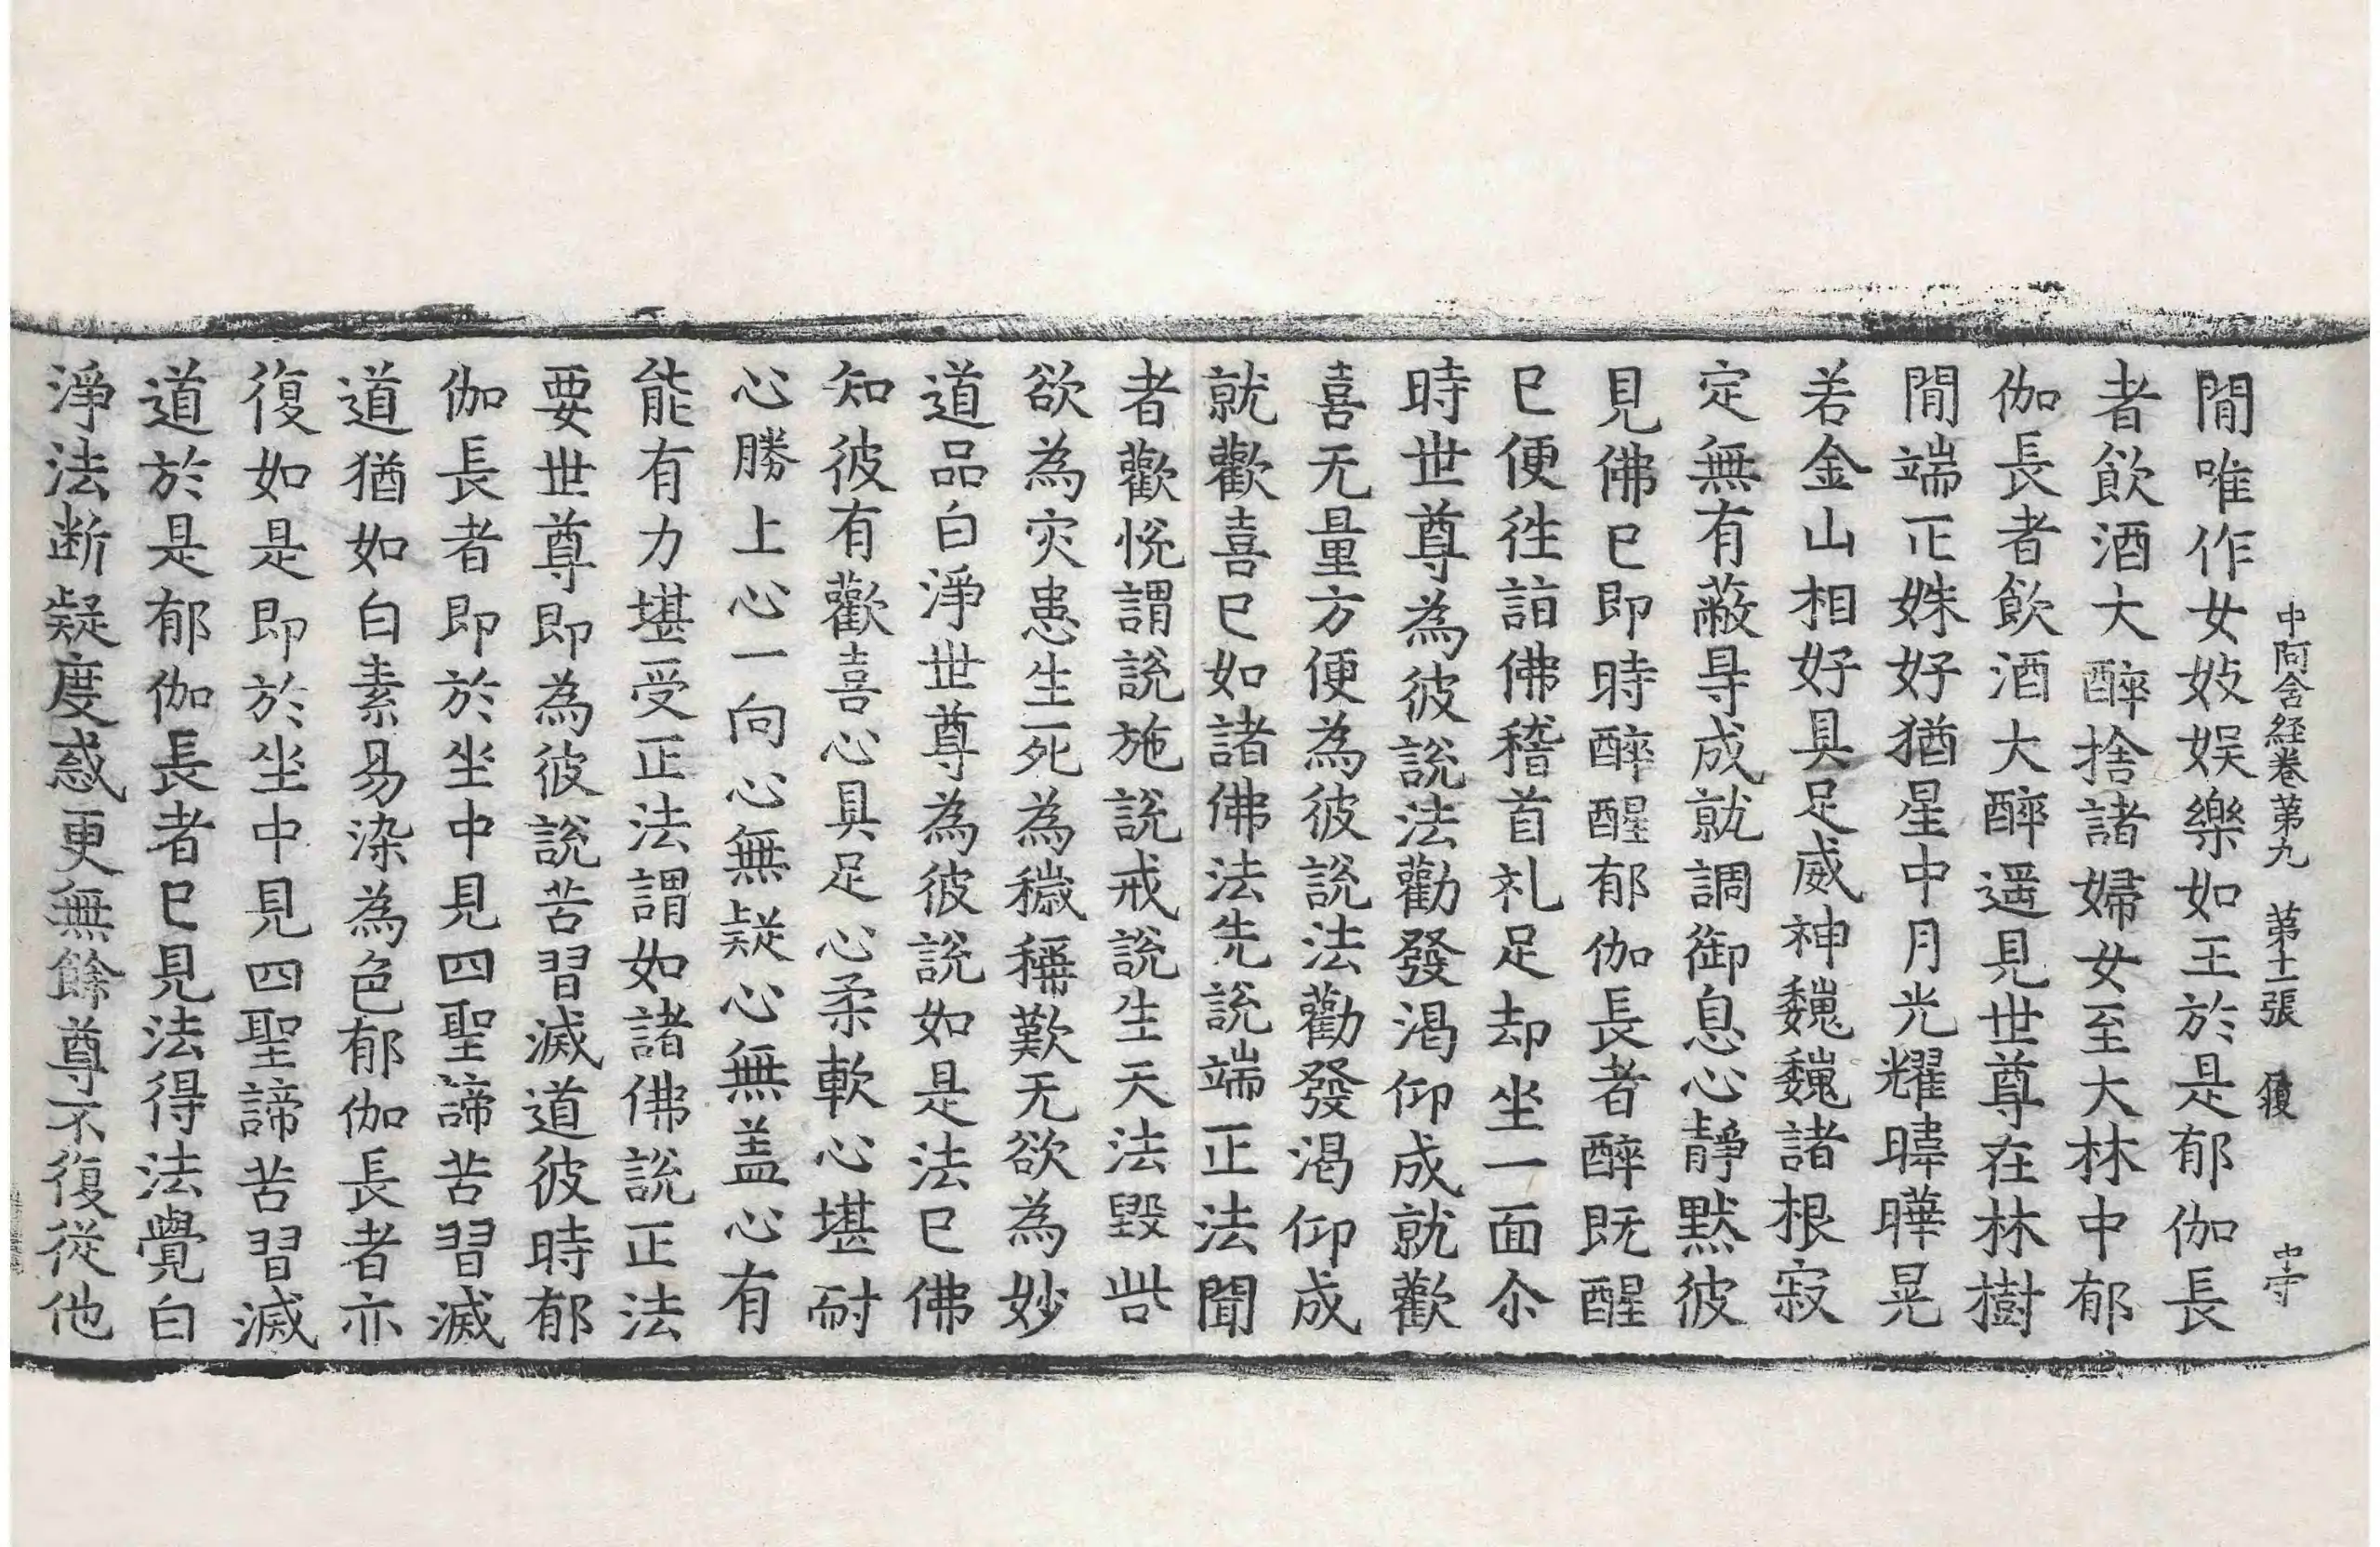 中阿含経巻第九　第十一張　㣪　中守
閒唯作女妓娱樂如王於是郁伽長
者飲酒大醉捨諸婦女至大林中郁
伽長者飲酒大醉遥見世尊在林樹
閒端正姝好猶星中月光耀暐曄晃
若金山相好具足威神魏魏諸根寂
定無有蔽㝵成就調御息心靜默彼
見佛已即時醉醒郁伽長者醉既醒
已便徃詣佛稽首礼足却坐一面尒
時世尊為彼說法勸發渴仰成就歡
喜无量方便為彼說法勸發渴仰成
就歡喜已如諸佛法先說端正法聞
者歡悅謂說施說戒說生天法毀呰
欲為灾患生死為穢稱歎无欲為妙
道品白淨世尊為彼說如是法已佛
知彼有歡喜心具足心柔軟心堪耐
心勝上心一向心無疑心無盖心有
能有力堪受正法謂如諸佛說正法
要世尊即為彼說苦習滅道彼時郁
伽長者即於坐中見四聖諦苦習滅
道猶如白素易染為色郁伽長者亦
復如是即於坐中見四聖諦苦習滅
道於是郁伽長者已見法得法覺白
淨法断疑度惑更無餘尊不復從他